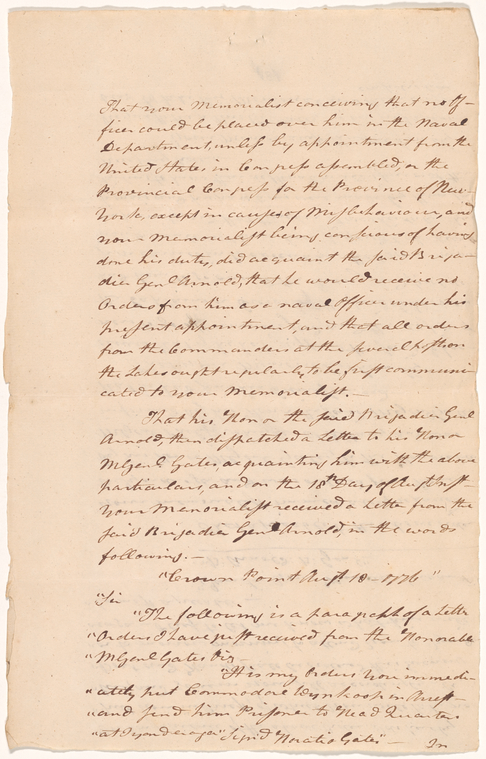 That your Memorialist conceiving that no Of-
ficer could be placed over him in the Naval
Department, unless by appointment from the
United States in Congress assembled, or the
Provincial Congress for the Province of New-
York, except in causes of Misbehaviour, and
your Memorialist being conscious of having
done his duty, did acquaint the said Briga-
dier Genl. Arnold, that he would receive no
Orders from him as a naval Officer under his
present appointment, and that all orders
from the Commanders at the several posts on
the Lakes ought regularly to be first communi
cated to your Memorialist.—
That his Honor the said Brigadier Genl
Arnold, then dispatched a Letter to his Honor
M Genl. Gates, acquainting him with the above
particulars, and on the 18th Day of Augt. Inst
your Memorialist received a Letter from the
said Brigadier Genl Arnold, in the words
following.—
"Crown Point Augt. 18– 1776"
"Sir
"The following is a paragraph of a Letter
"Orders I have just received from the Honorable
"M Genl Gates Viz
"It is my Orders You immedi-
"ately put Commodore Wynkoop in Arrest
"and send him Prisoner to Head Quarters
"at Tyonderoga" Sign'd "Horatio Gates" —
In